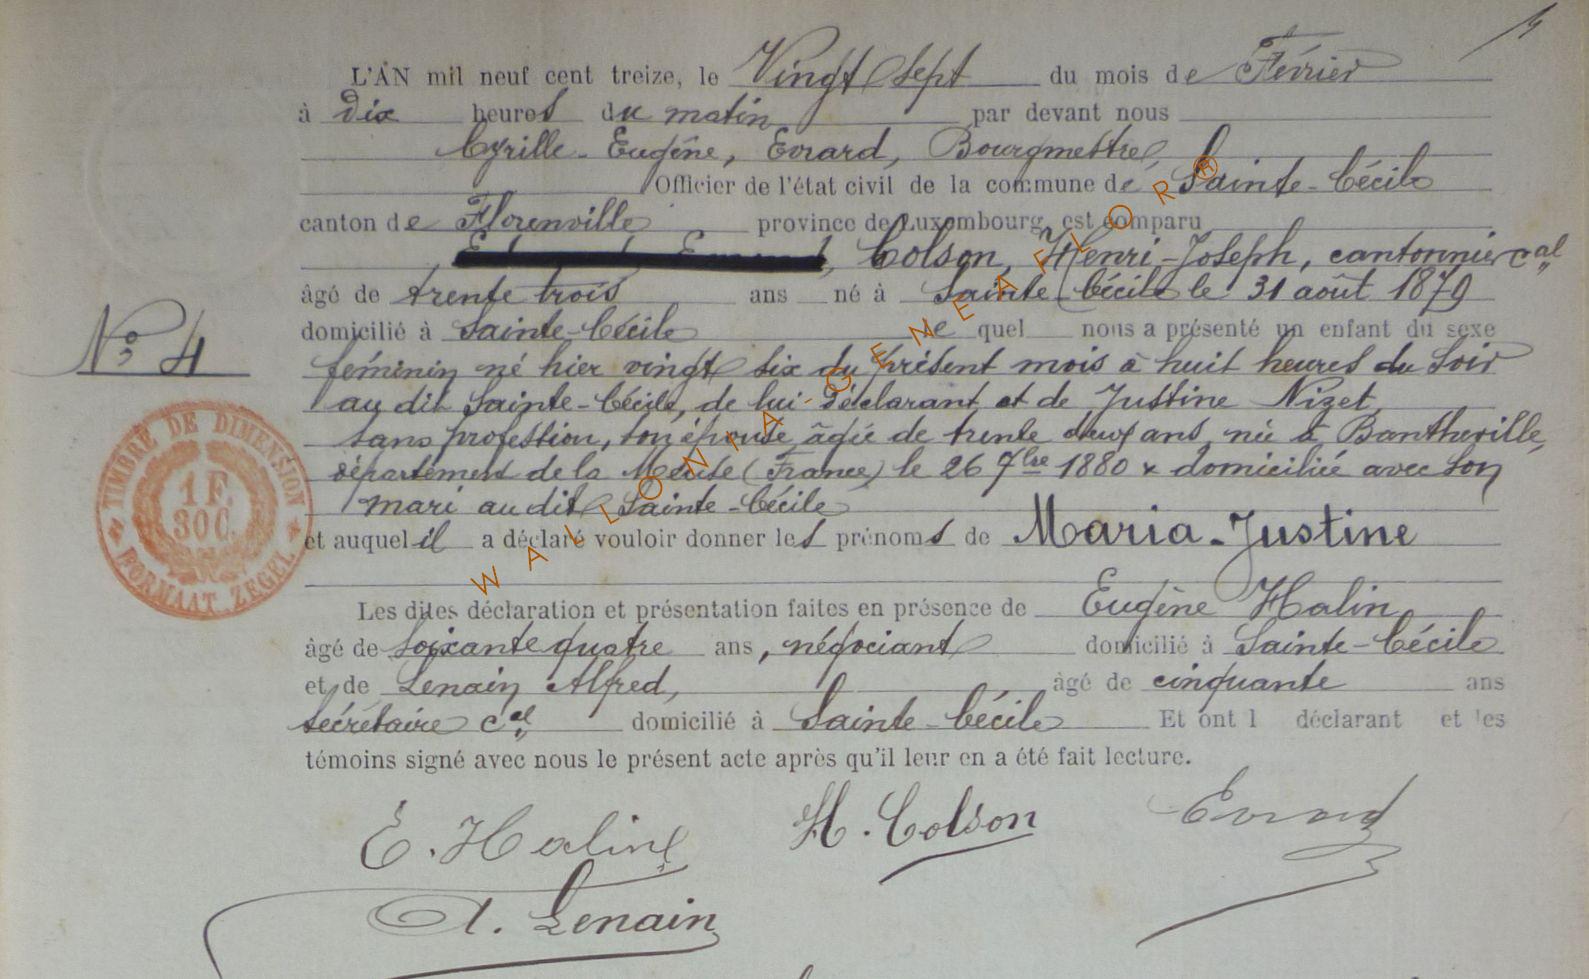 4
L'AN mil neuf cent treize, le Vingt sept du mois de Février
à Dix heures du matin par devant nous
Cyrille-Eugène, Evrard, Bourgmestre,
Officier de l'état civil de la commune de Sainte-Cécile
canton de Florenville province de Luxembourg, est comparu
Colson, Henri-Joseph, cantonnier cal
âgé de trente trois ans né à Sainte Cécile le 31 août 1879
domicilié à Sainte-Cécile le quel nous a présenté un enfant du sexe
No 4
féminin né hier vingt six du présent mois à huit heures du soir
au dit Sainte-Cécile, de lui déclarant et de Justine Nizet
sans profession, son épouse âgée de trente deux ans, née à Bantheville,
département de la Meuse (France) le 26 7bre 1880 & domiciliée avec son
mari au dit Sainte-Cécile
et auquel il a déclaré vouloir donner les prénoms de Maria-Justine
Les dites déclaration et présentation faites en présence de Eugène Halin
âgé de soixante quatre ans, négociant domicilié à Sainte-Cécile
et de Lenain Alfred, âgé de cinquante ans
secrétaire cal domicilié à Sainte-Cécile Et ont l déclarant et les
témoins signé avec nous le présent acte après qu'il leur en a été fait lecture.
E. Halin H. Colson Evrard
A. Lenain
TIMBRE DE DIMENSION
1 F.
30 C.
FORMAAT ZEGEL
WALLONIA-GENEAFLOR®